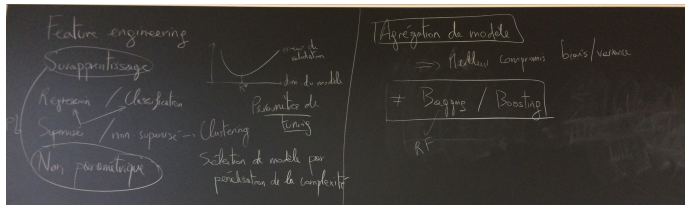 Feature engineering
Surapprentissage
Régression / Classification
Supervisé / non supervisé → Clustering
Non paramétrique
Pb
erreur de validation
dim du modèle
Paramètres de tuning
Sélection de modèle par
pénalisation de la complexité
Agrégation de modèle
⇒ Meilleur compromis biais/variance
≠ Bagging / Boosting
RF